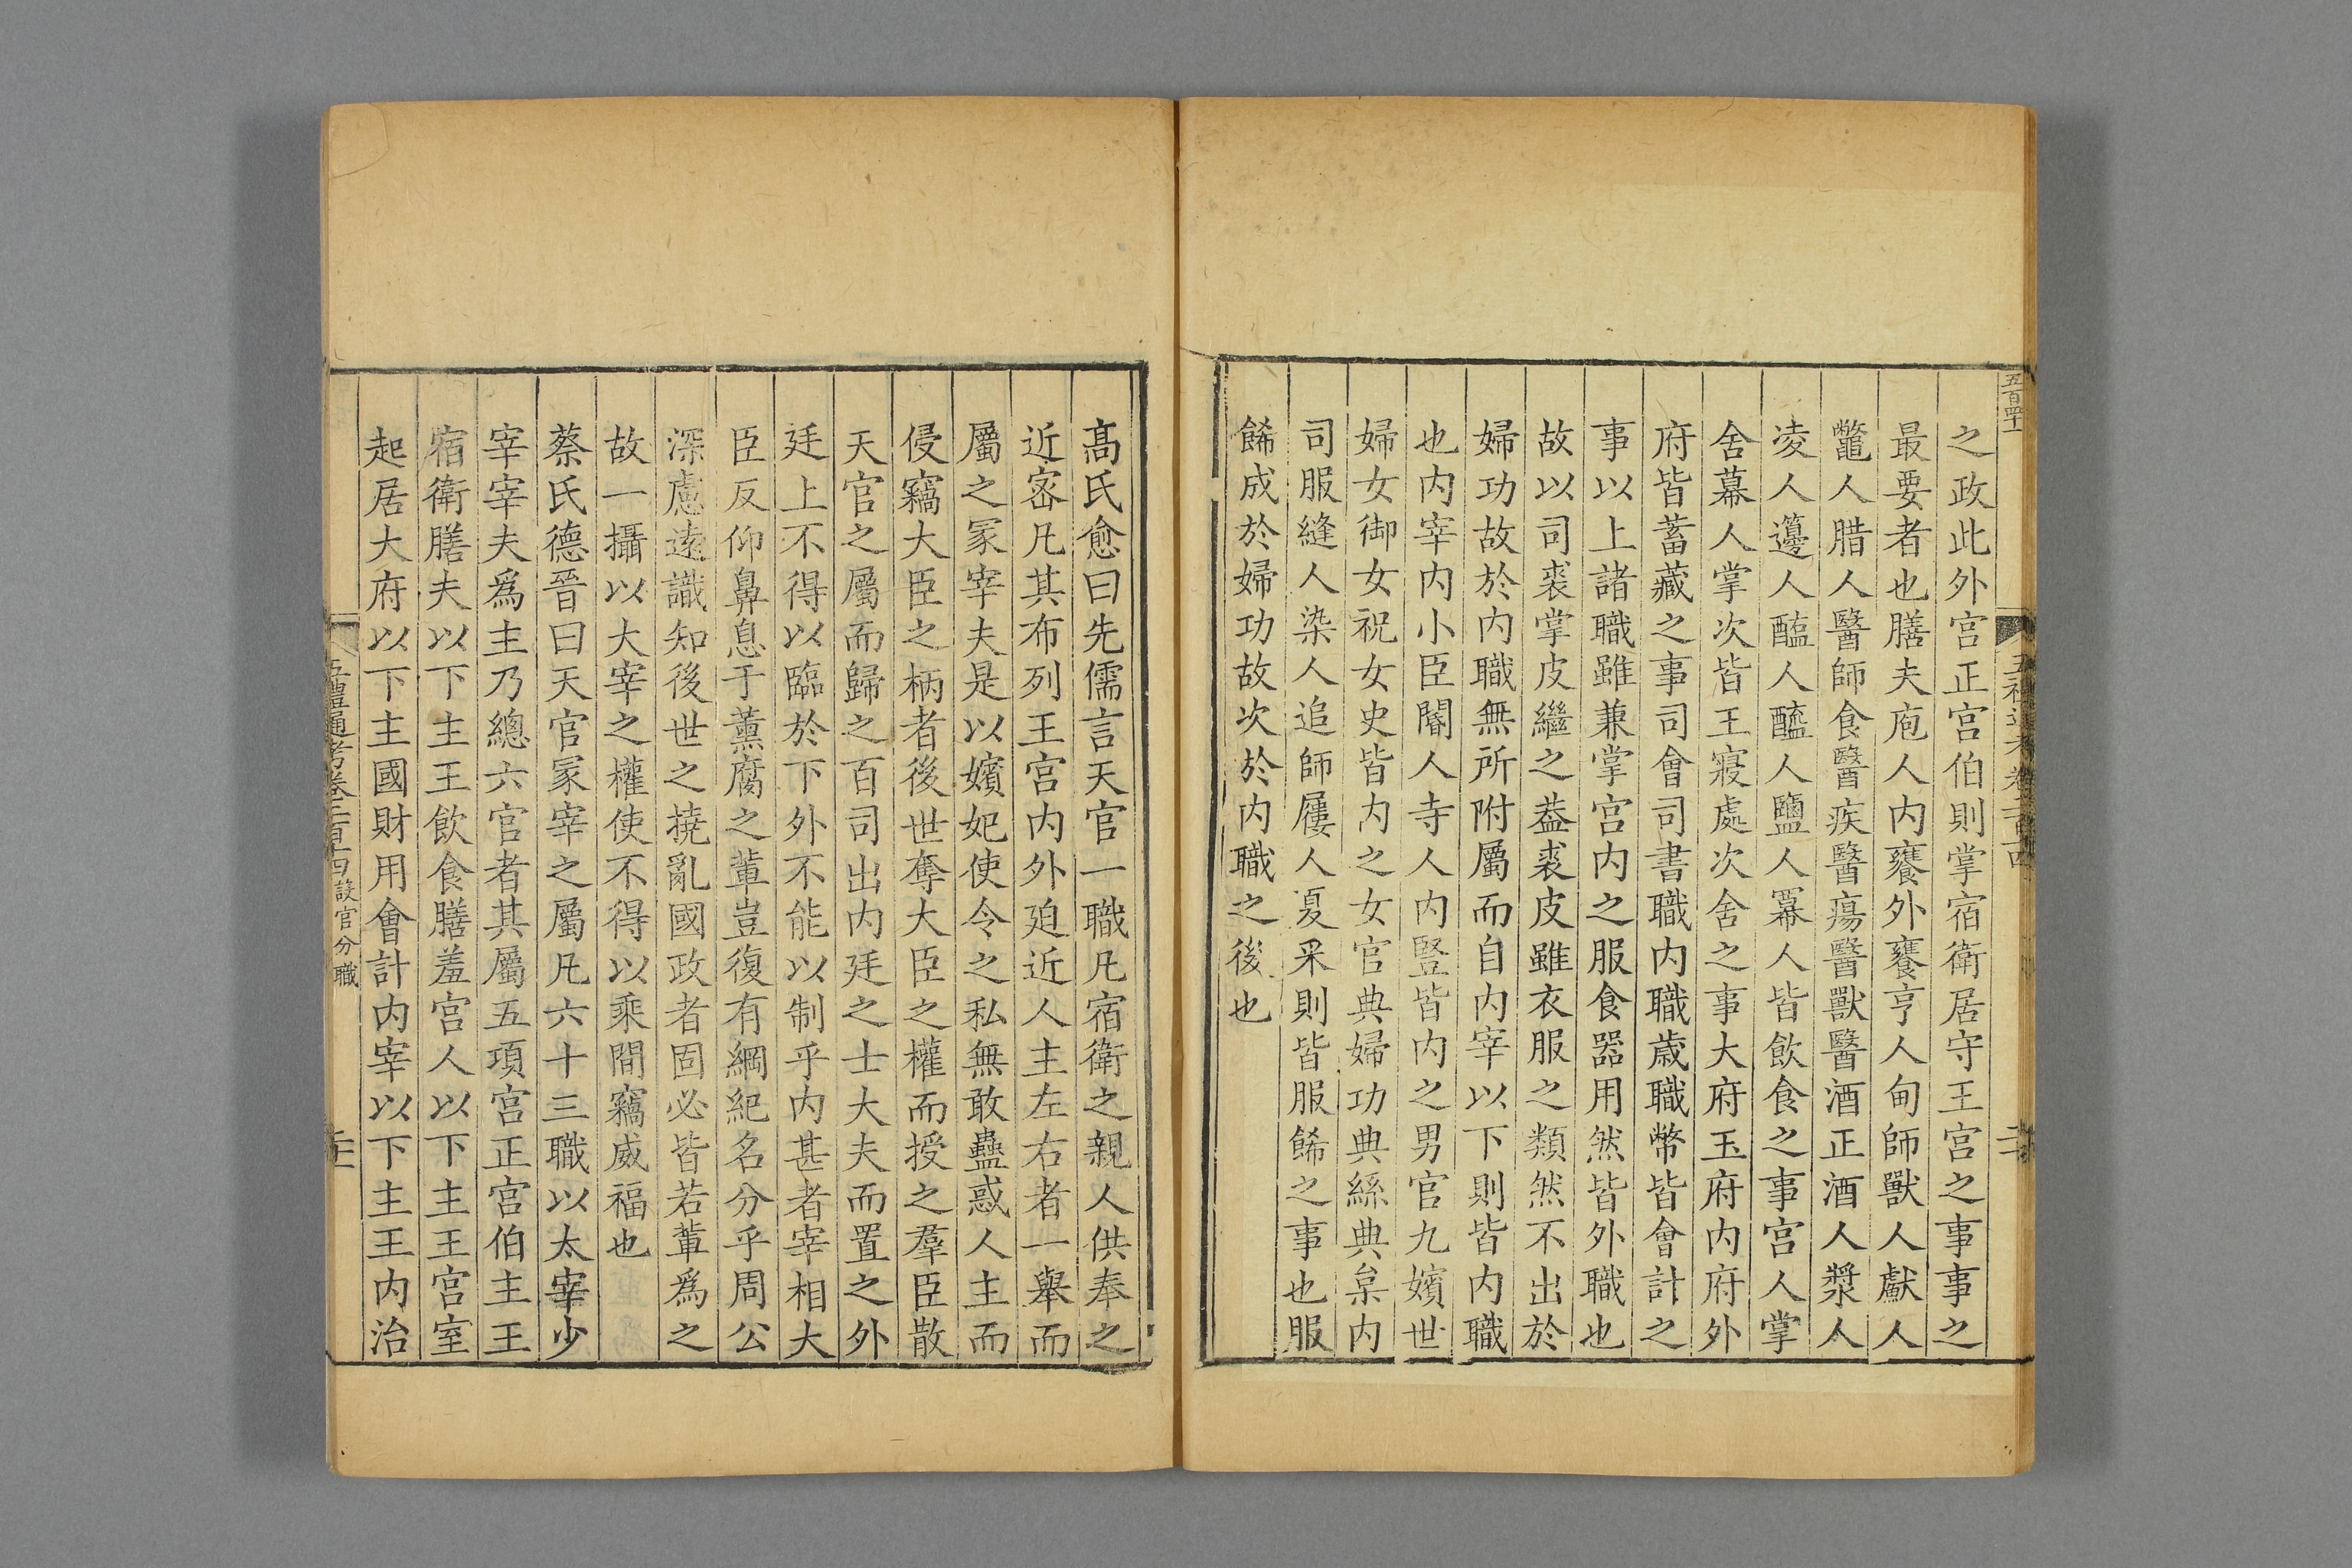 五百四十一
之政此外宮正宮伯則掌宿衛居守王宮之事事之
最要者也膳夫庖人内饔外饔亨人甸師獸人𤞞人
鼈人腊人醫師食醫疾醫瘍醫獸醫酒正酒人漿人
凌人籩人醢人醯人鹽人冪人皆飲食之事宮人掌
舍幕人掌次皆王寢處次舍之事大府玉府内府外
府皆蓄藏之事司會司書職内職歲職幣皆會計之
事以上諸職雖兼掌宮内之服食器用然皆外職也
故以司裘掌皮繼之葢裘皮雖衣服之類然不出於
婦功故於内職無所附屬而自内宰以下則皆内職
也内宰内小臣閽人寺人内豎皆内之男官九嬪世
婦女御女祝女史皆内之女官典婦功典絲典枲内
司服縫人染人追師屨人夏采則皆服餙之事也服
餙成於婦功故次於内職之後也
高氏愈曰先儒言天官一職凡宿衛之親人供奉之
近密凡其布列王宮内外廹近人主左右者一舉而
屬之冢宰夫是以嬪妃使令之私無敢蠱惑人主而
侵竊大臣之柄者後世奪大臣之權而授之羣臣散
天官之屬而歸之百司出内廷之士大夫而置之外
廷上不得以臨於下外不能以制乎内甚者宰相大
臣反仰鼻息于薰腐之輩豈復有綱紀名分乎周公
深慮遠識知後世之撓亂國政者固必皆若輩爲之
故一攝以大宰之權使不得以乘間竊威福也
蔡氏德晉曰天官冢宰之屬凡六十三職以太宰少
宰宰夫爲主乃總六官者其屬五項宮正宮伯主王
宿衛膳夫以下主王飲食膳羞宮人以下主王宮室
起居大府以下主國財用會計内宰以下主王内治
五禮通考卷二百十四 設官分職